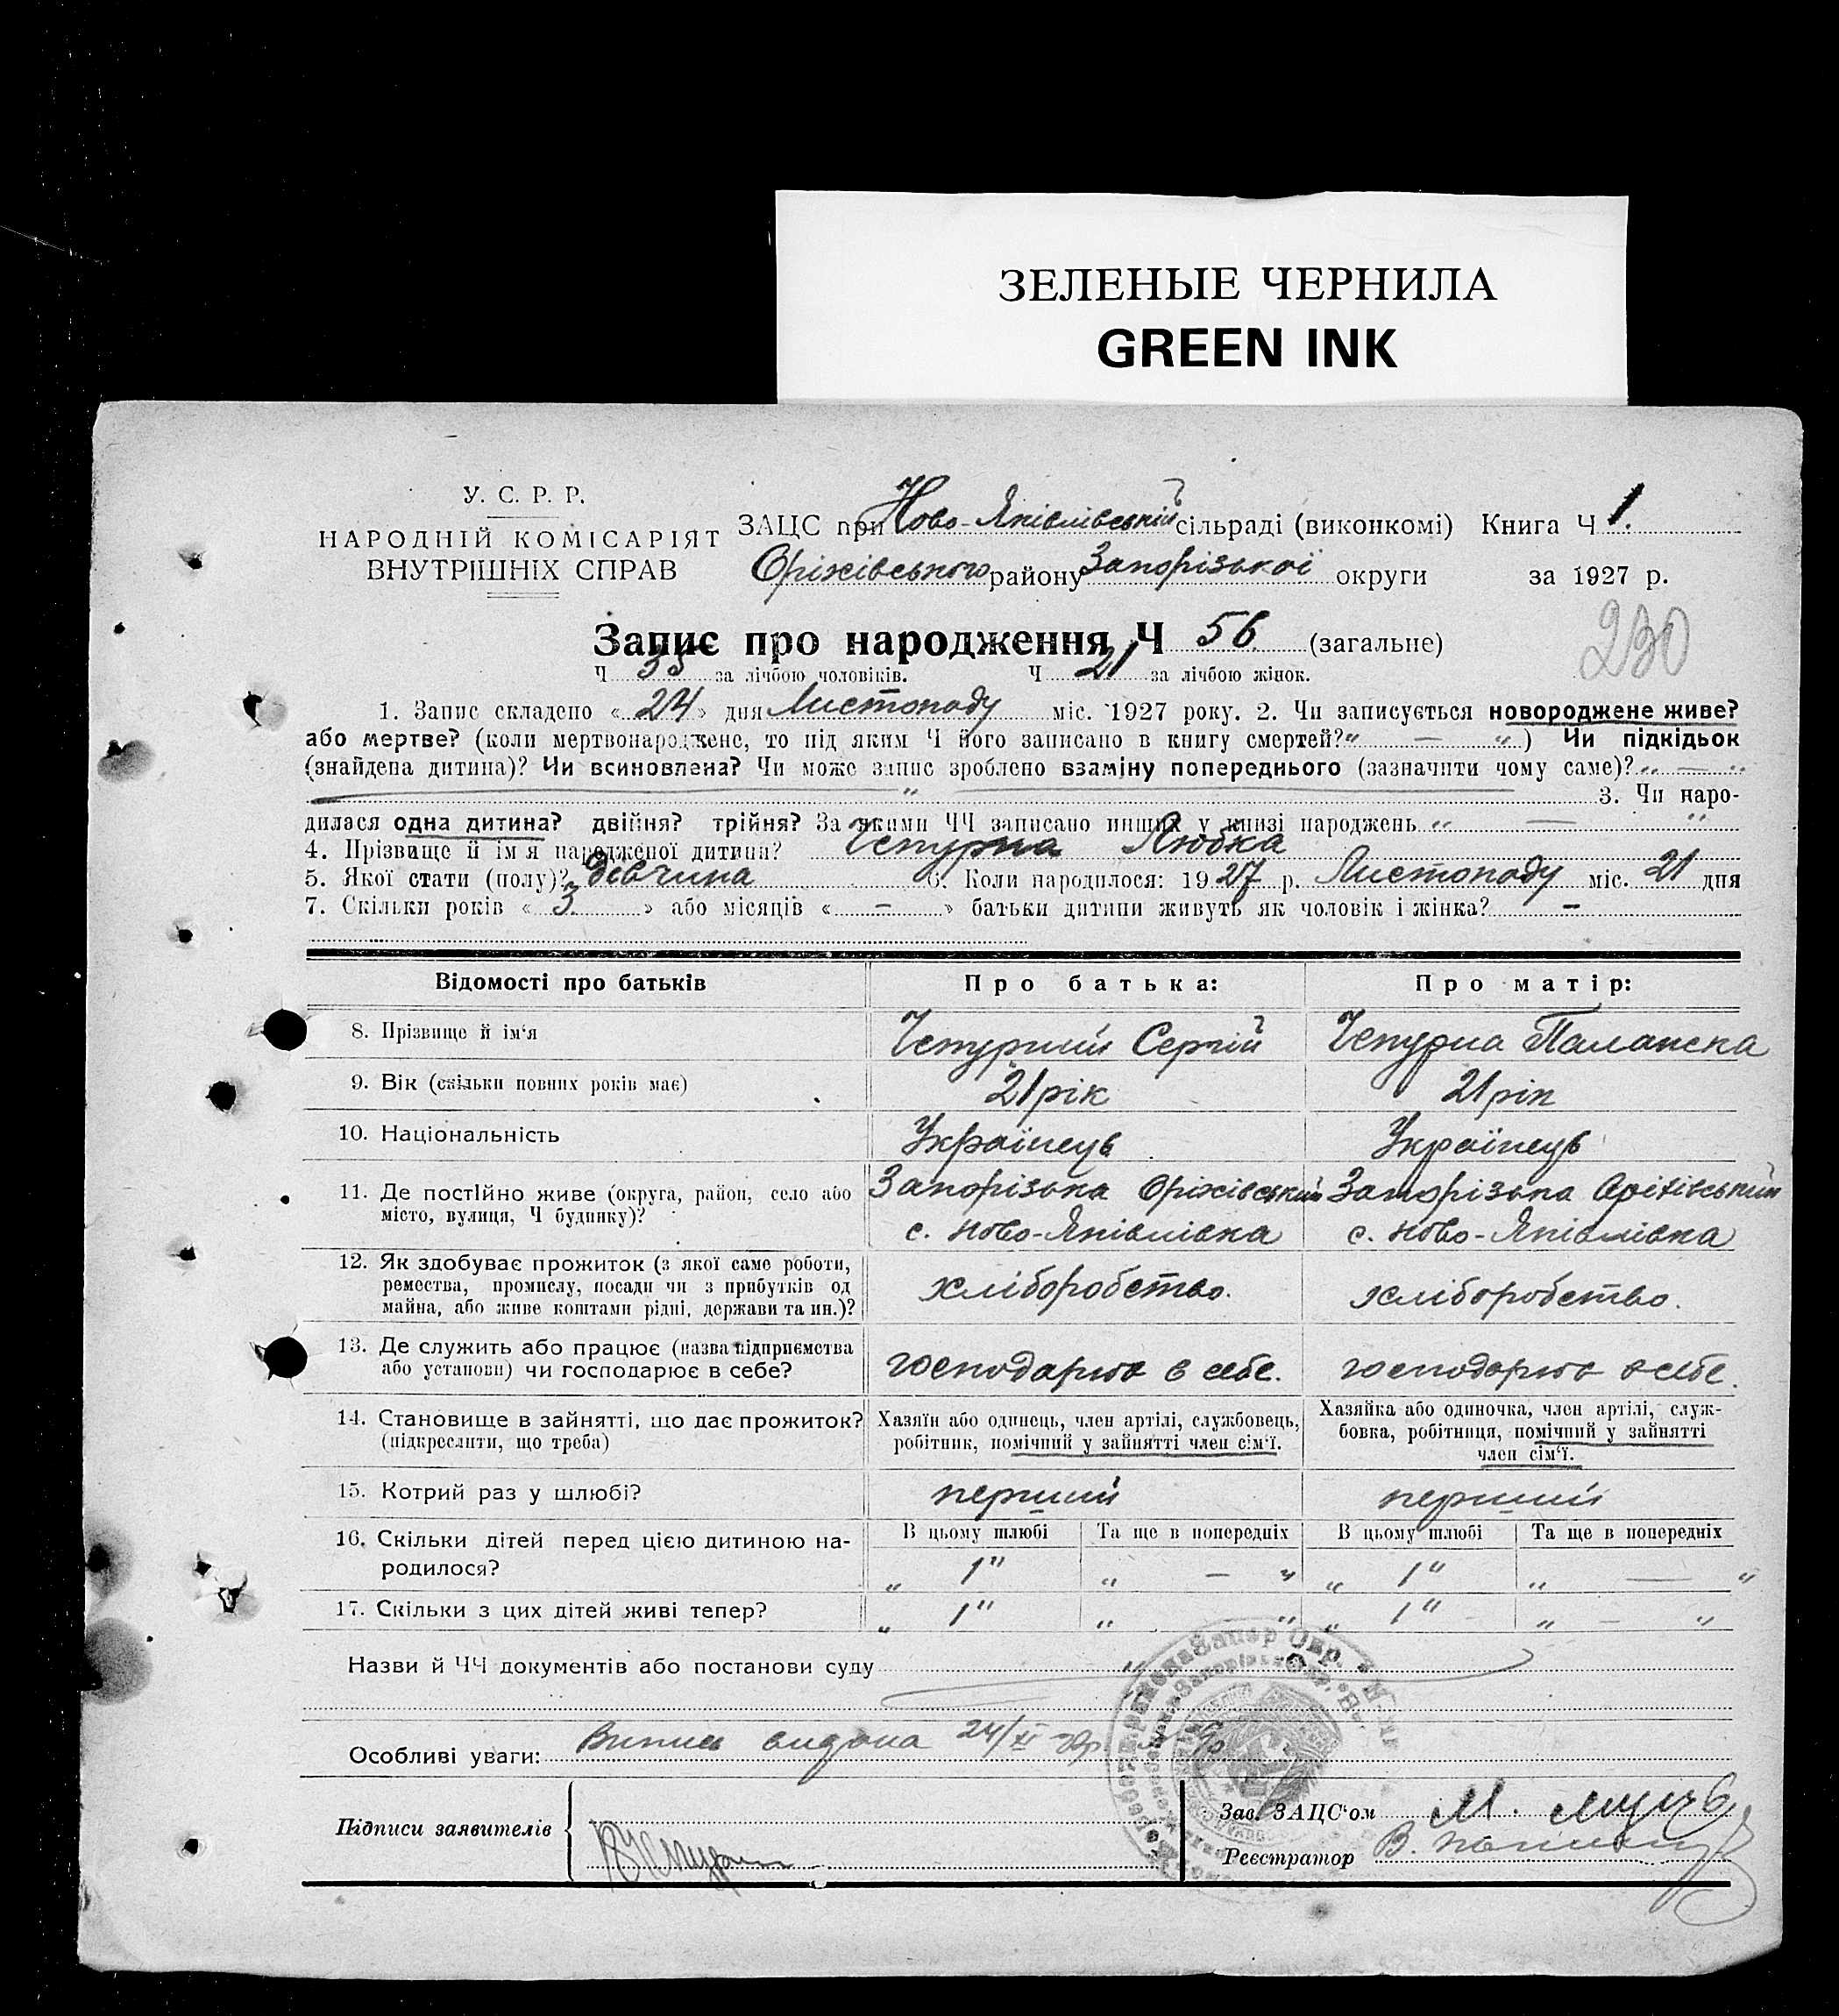 ЗЕЛЕНЫЕ ЧЕРНИЛА
GREEN INK
У. С. Р. Р.
НАРОДНІЙ КОМІСАРІЯТ
ВНУТРІШНІХ СПРАВ
ЗАЦС при Ново-Яківлівській сільраді (виконкомі) Книга Ч 1.
Оріхівського району Запорізької округи за 1927 р.
230
Запис про народження Ч 56. (загальне)
Ч 35 за лічбою чоловіків. Ч 21 за лічбою жінок.
1. Запис складено « 24 » дня Листопаду міс. 1927 року. 2. Чи записується новороджене живе?
або мертве? (коли мертвонароджене, то під яким Ч його записано в книгу смертей? „ — “) Чи підкідьок
(знайдена дитина)? Чи всиновлена? Чи може запис зроблено взаміну попереднього (зазначити чому саме)? „ — “
„ 3. Чи наро-
дилася одна дитина? двійня? трійня? За якими ЧЧ записано инших у книзі народжень „ — “
4. Прізвище й ім'я народженої дитини? Чепурна Любка
5. Якої стати (полу)? дівчина 6. Коли народилося: 1927 р. Листопаду міс. 21 дня
7. Скільки років « 3 » або місяців « — » батьки дитини живуть як чоловік і жінка? —
Відомості про батьків Про батька: Про матір:
8. Прізвище й ім'я Чепурний Сергій Чепурна Палажка
9. Вік (скільки повних років має) 21 рік 21 рік
10. Національність Українець Українець
11. Де постійно живе (округа, район, село або Запорізька Оріхівський Запорізька Оріхівський
місто, вулиця, Ч будинку)? с. Ново-Яківлівка с. Ново-Яківлівка
12. Як здобуває прожиток (з якої саме роботи,
ремества, промислу, посади чи з прибутків од хліборобство. хліборобство.
майна, або живе коштами рідні, держави та ин.)?
13. Де служить або працює (назва підприємства
або установи) чи господарює в себе? господарює в себе. господарює в себе.
14. Становище в зайнятті, що дає прожиток? Хазяїн або одинець, член артілі, службовець, Хазяйка або одиночка, член артілі, служ-
(підкреслити, що треба) робітник, помічний у зайнятті член сім'ї. бовка, робітниця, помічний у зайнятті
член сім'ї.
15. Котрий раз у шлюбі? перший перший
16. Скільки дітей перед цією дитиною на- В цьому шлюбі Та ще в попередніх В цьому шлюбі Та ще в попередніх
родилося? „ 1 “ „ — “ „ 1 “ „ — “
17. Скільки з цих дітей живі тепер? „ 1 “ „ “ „ 1 “ „ — “
Назви й ЧЧ документів або постанови суду
Особливі уваги: Випис видана 24/XI
Підписи заявителів Зав. ЗАЦС'ом М.
Реєстратор В.